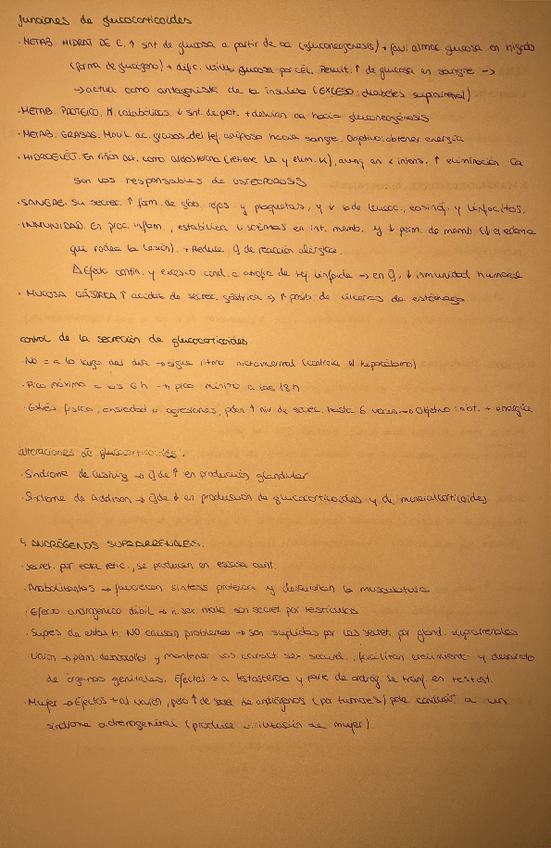 funciones de glucocorticoides
· METAB. HIDRAT DE C. ↑ snt de glucosa a partir de aa (gluconeogenesis) + fav. almac. glucosa en hígado
(forma de glucógeno) + dific. utiliz glucosa por cél. Result. ↑ de glucosa en sangre →
→ actua como antagonista de la insulina (EXCESO: diabetes suprarrenal)
· METAB. PROTEICO. catabólitos ↓ snt de prot. + desvían aa hacia gluconeogénesis
· METAB. GRASAS. Movil. ac. grasos del tej adiposo hacia sangre. Objetivo: obtener energía
· HIDROELÉCT. En riñón act. como aldosterona (retiene Na y elim. K), aunq en < intens. ↑ eliminación Ca
son los responsables de OSTEOPOROSIS
· SANGRE. Su secrec. ↑ form. de glób. rojos y plaquetas, y ↓ la de leucoc., eosinóf. y linfocitos.
· INMUNIDAD. En proc. inflam., estabiliza lisosomas en int. memb. y ↓ perm. de memb. (↓ el edema
que rodea la lesión). + Reduce q de reacción alérgica.
Δ Efecto contin. y excesivo cond. a atrofia de tej. linfoide → en q, ↓ inmunidad humoral
· MUCOSA GÁSTRICA ↑ acidez de secrec. gástrica ⇒ ↑ posib de úlceras de estómago
control de la secreción de glucocorticoides
· No = a lo largo del día → sigue ritmo nictameral (controla el hipotálamo)
· Pico máximo a las 6 h → pico mínimo a las 18 h
· Estrés físico, ansiedad o agresiones, pden ↑ niv de secrec. hasta 6 veces → Objetivo: obt. + energía
alteraciones de glucocorticoides.
· Síndrome de Cushing → q de ↑ en producción glandular
· Síndrome de Addison → q de ↓ en producción de glucocorticoides y de mineralcorticoides
4. ANDRÓGENOS SUPRARRENALES.
· Secret. por capa retic., se producen en escasa cant.
· Anabolizantes → favorecen síntesis proteica y desarrollan la musculatura
· Efecto androgénico débil → h. sex. masc son secret por testículos
· Supres de estas h. NO causan problemas → son suplidas por las secret. por glánd. suprarrenales
· Varón → perm. desarrollar y mantener los caract. sex. secund., facilitan crecimiento y desarrollo
de órganos genitales. Efectos = a testosterona y parte de andróg. se tranf. en testost.
· Mujer → Efectos = al varón, pero ↑ de secrec de andrógenos (por tumores) pede conducir a un
síndrome adrenogenital (produce virilización de mujer).